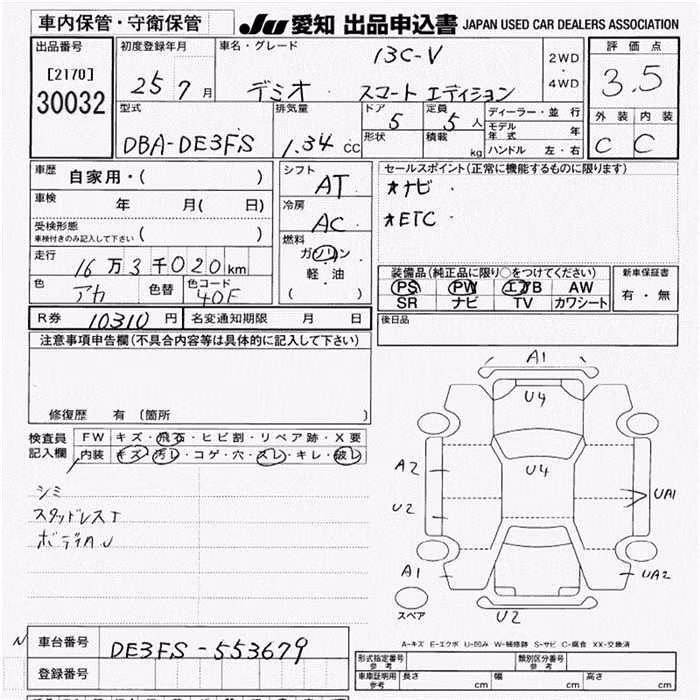 車内保管・守衛保管 JU 愛知 出品申込書 JAPAN USED CAR DEALERS ASSOCIATION
出品番号 [2170] 30032
初度登録年月 25 7月
車名・グレード 13C-V デミオ スマート エディション
2WD・4WD
評価点 3.5
外装 内装 C C
型式 DBA-DE3FS
排気量 1.34 cc
ドア 5 形状
定員 5人 積載 kg
ディーラー・並行
モデル年式 年
ハンドル 左・右
車歴 自家用・( )
車検 年 月( 日)
受検形態 車検付きのみ記入して下さい ( )
走行 16万3千020km
色 アカ 色替 色コード 40F
シフト AT
冷房 AC
燃料 ガソリン 軽油 ( )
セールスポイント(正常に機能するものに限ります)
*ナビ
*ETC
装備品(純正品に限り○をつけてください)
PS PW エアB AW
SR ナビ TV カワシート
新車保証書 有・無
R券 10310円 名変通知期限 月 日
後日品
注意事項申告欄(不具合内容等は具体的に記入して下さい)
修復歴 有 (箇所 )
検査員記入欄
FW キズ・飛石・ヒビ割・リペア跡・X要
内装 キズ・汚レ・コゲ・穴・スレ・キレ・破レ
シミ
スタッドレスT
ボディA U
A1
U4
A2 U4
U2 UA1
A1 UA2
スペア U2
A-キズ E-エクボ U-凹み W-補修跡 S-サビ C-腐食 XX-交換済
N 車台番号 DE3FS-553679
登録番号
形式指定番号 参考 類別区分番号 参考
車庫証明用 参考 長さ cm 幅 cm 高さ cm